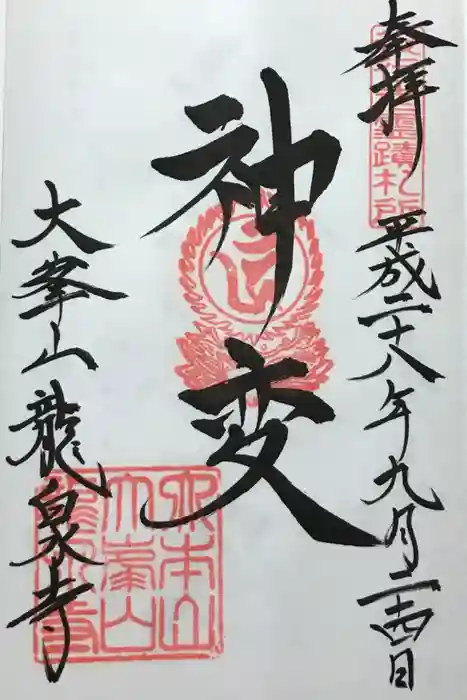 奉拝
平成二十八年九月二十四日
神変
大峯山龍泉寺
霊蹟札所
大本山
大峯山
龍泉寺